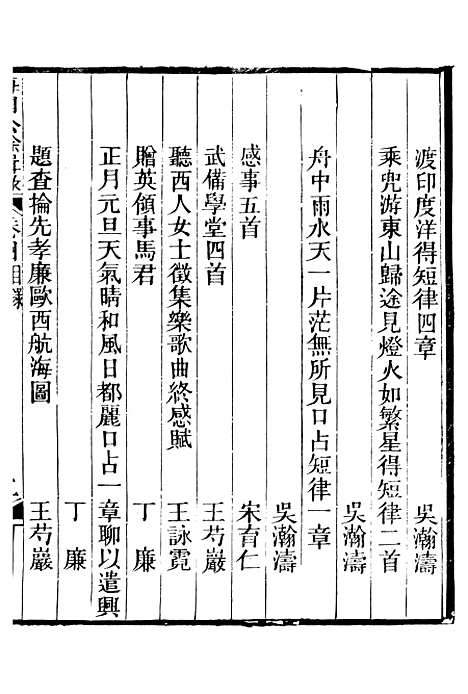 渡印度洋得短律四章 吳瀚濤
乘兜游東山歸途見燈火如繁星得短律二首
吳瀚濤
舟中雨水天一片茫無所見口占短律一章
吳瀚濤
感事五首 宋育仁
武備學堂四首 王芍巖
聽西人女士徵集樂歌曲終感賦 王詠霓
贈英領事馬君 丁廉
正月元旦天氣晴和風日都麗口占一章聊以遣興
丁廉
題查掄先孝廉歐西航海圖 王芍巖